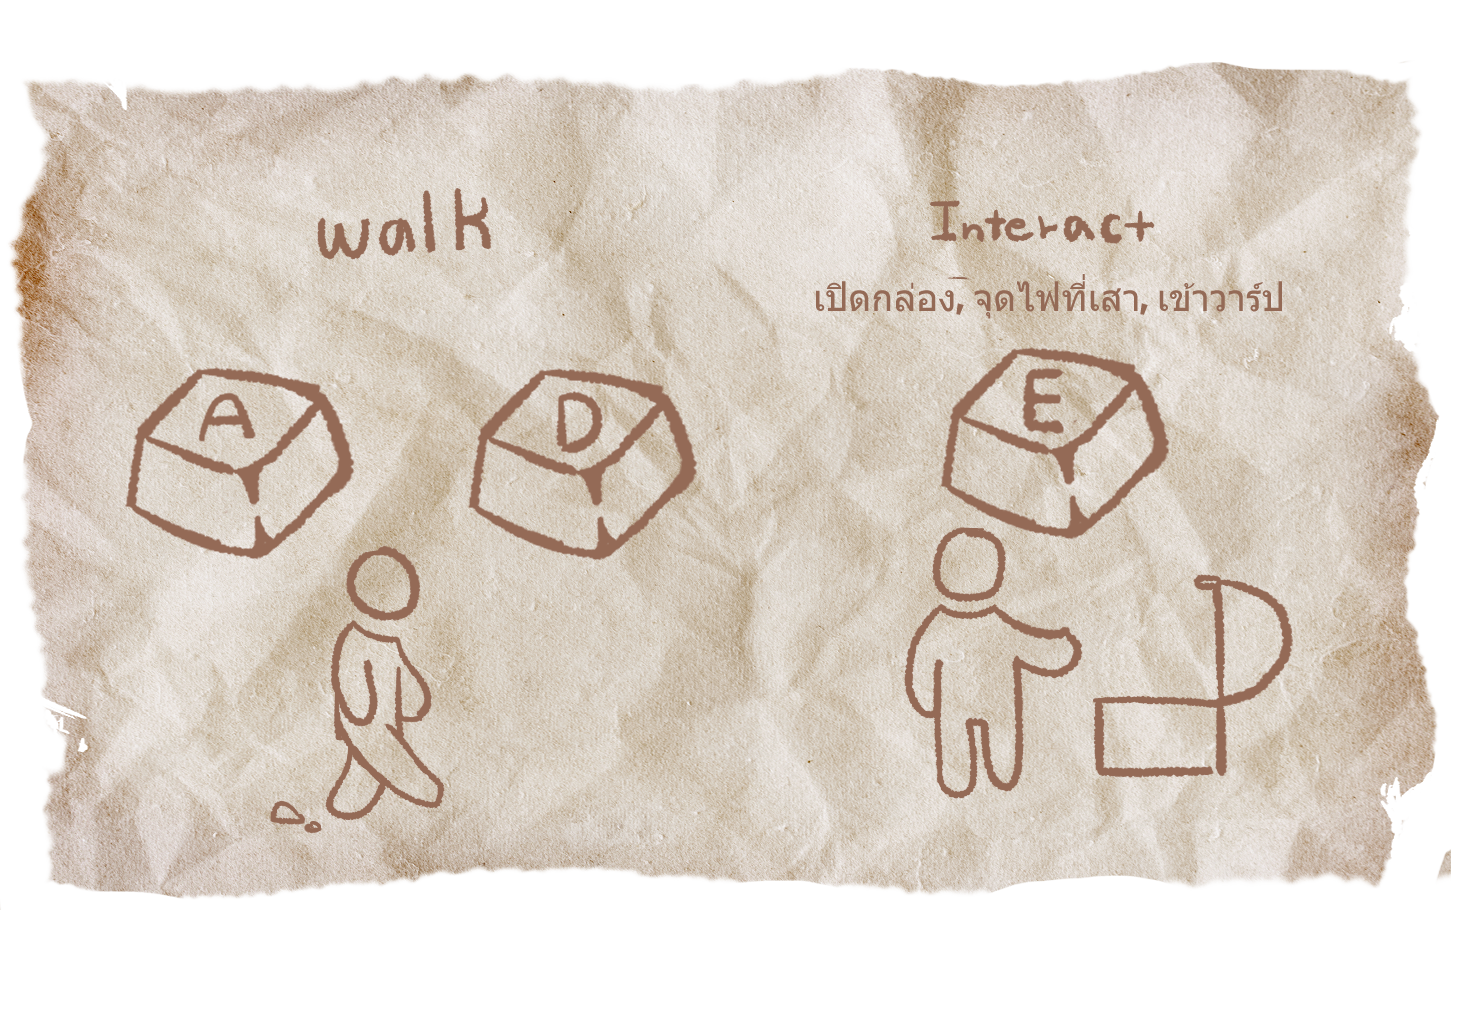 walk
Interact
เปิดกล่อง, จุดไฟที่เสา, เข้าวาร์ป
A
D
E